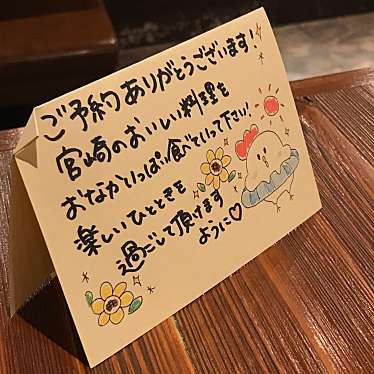 ご予約ありがとうございます!
宮崎のおいしい料理を
おなかいっぱい食べていって下さい!
楽しいひとときを
過ごして頂けます
ように♡